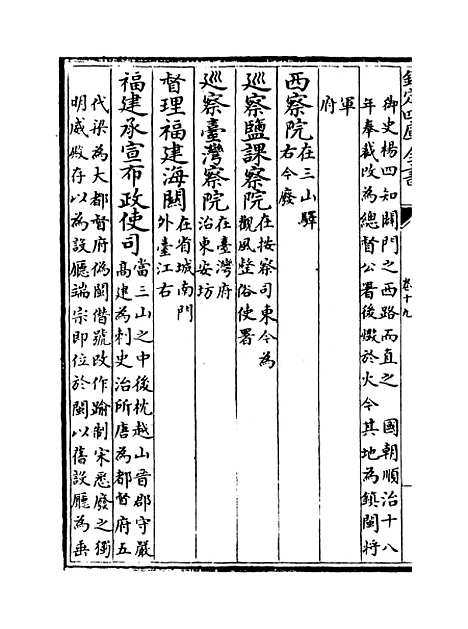 欽定四庫全書
卷十九
御史楊四知闢門之西路而直之 國朝順治十八
年奉裁改為總督公署後燬於火今其地為鎮閩將
軍
府
西察院在三山驛
右今廢
廵察鹽課察院在按察司東今為
觀風整俗使署
廵察臺灣察院在臺灣府
治東安坊
督理福建海關在省城南門
外臺江右
福建承宣布政使司當三山之中後枕越山晉郡守嚴
高建為刺史治所唐為都督府五
代梁為大都督府偽閩僣號改作踰制宋悉廢之衙
明威殿存以為設廳端宗即位於閩以舊設廳為垂